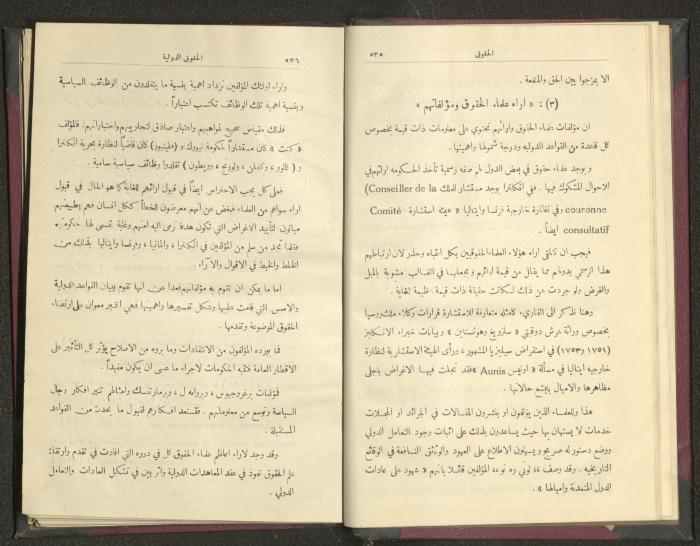 الحقوق ٥٣٥
الا يمزجوا بين الحق والمنفعة .
(٣) : « اراء علماء الحقوق ومؤلفاتهم »
ان مؤلفات علماء الحقوق وارائهم تحتوي على معلومات ذات قيمة بخصوص
كل قاعدة من القواعد الدوليه ودرجة شمولها واهميتها .
و يوجد علماء حقوق في بعض الدول لهم صفه رسمية تأخذ الحكومه ارائهم في
الاحوال المشكوك فيها . ففي انكلترا يوجد مستشار الملك (Conseiller de la
couronne وفي نظارة خارجية فرنسا وايتاليا « هيئة استشارة Comité
consultatif ايضاً .
فيجب ان تتلقى اراء هؤلاء العلماء الحقوقيين بكل انتباه وحذر لان ارتباطهم
هذا الرسمي بدولهم مما يقلل من قيمة ارائهم ويجعلها في الغالب مشوبة بالميل
والغرض ولو جردت عن ذلك لكانت حقيقة ذات قيمة عظيمة للغاية .
وهنا نذكر الى القاري كأمثله متعارفة للاستشارة قرارات وكلاء ملك روسيا
بخصوص وراثة عرش دوقيتي « سلزويغ وهولستاين » وبيانات خبراء الانكليز
(١٧٥١ و١٧٥٣) في استقراض سيليزيا المشهور ، ورأى الهيئة الاستشارية لنظارة
خارجيه ايتاليا في مسألة « اونيس Aunis » فقد تجلت فيها الاغراض باجلى
مظاهرها والاميال بابشع حالاتها .
هذا وللعلماء الذين يؤلفون او ينشرون المقالات في الجرائد او المجلات
خدمات لا يستهان بها حيث يساعدون بذلك على اثبات وجود التعامل الدولي
ووضع دستور له صريح ويسهلون الاطلاع على العهود والوثائق النافعة في الوقائع
التاريخيه . وقد وصف ،، لوني رو نو ،، المؤلفين قائلا بانهم « شهود على عادات
الدول المتمدنة واميالها » .
الحقوق الدولية ٥٣٦
واراء اولئك المؤلفين تزداد اهمية بنسبة ما يتقلدون من الوظائف السياسية
وبنسبة اهمية تلك الوظائف تكتسب اعتباراً .
فذلك مقياس صحيح لمواهبهم واختبار صادق لتجاربهم واختباراتهم . فالمؤلف
« كنت » كان مستشاراً لحكومة نيورك و ( فليمور ) كان قاضياً لنظارة بحرية انكلترا
و ( كالوو ، ولورنج ، وويطون ) تقلدوا وظائف سياسية سامية .
فعلى كل يجب الاحتراس ايضاً في قبول ارائهم للغاية كما هو الحال في قبول
اراء سواهم من العلماء فبغض عن انهم معرضون للخطأ ككل انسان فهم بطبيعتهم
ميالون لتأييد الاغراض التي تكون هدفا ترمى اليه امتهم وغاية تسعى لها حكومتهم
فقلما نجد من سلم من المؤلفين في انكلترا ، والمانيا ، وفرنسا وايتاليا بذلك من
الخلط والخبط في الاقوال والآراء .
اما ما يمكن ان تقوم به مؤلفاتهم فعدا عن انها تقوم ببيان القواعد الدولية
والاسس التي قامت عليها وشكل تفسيرها واهميتها فهي اكبر معوان على ارتقاء
الحقوق الموضوعة وتقدمها .
فما يورده المؤلفون من الانتقادات وما يروه من الاصلاح يؤثر كل التأثير على
الافكار العامة فتنبه الحكومات لاجراء ما عسى ان يكون مفيداً .
فمؤلفات برغرجيوس ، وبروانه ل ، وبرمارتنسك وامثالهم تنير افكار رجال
السياسة وتوسع من معلوماتهم . فتستعد افكارهم لقبول ما يحدث من القواعد
المستقبلة .
وقد وجد لاراء اعاظم علماء الحقوق كل في دوره التي افادت في تقدم وارتقاء
علم الحقوق نفوذ في عقد المعاهدات الدولية واثر بين في تشكل العادات والتعامل
الدولي .